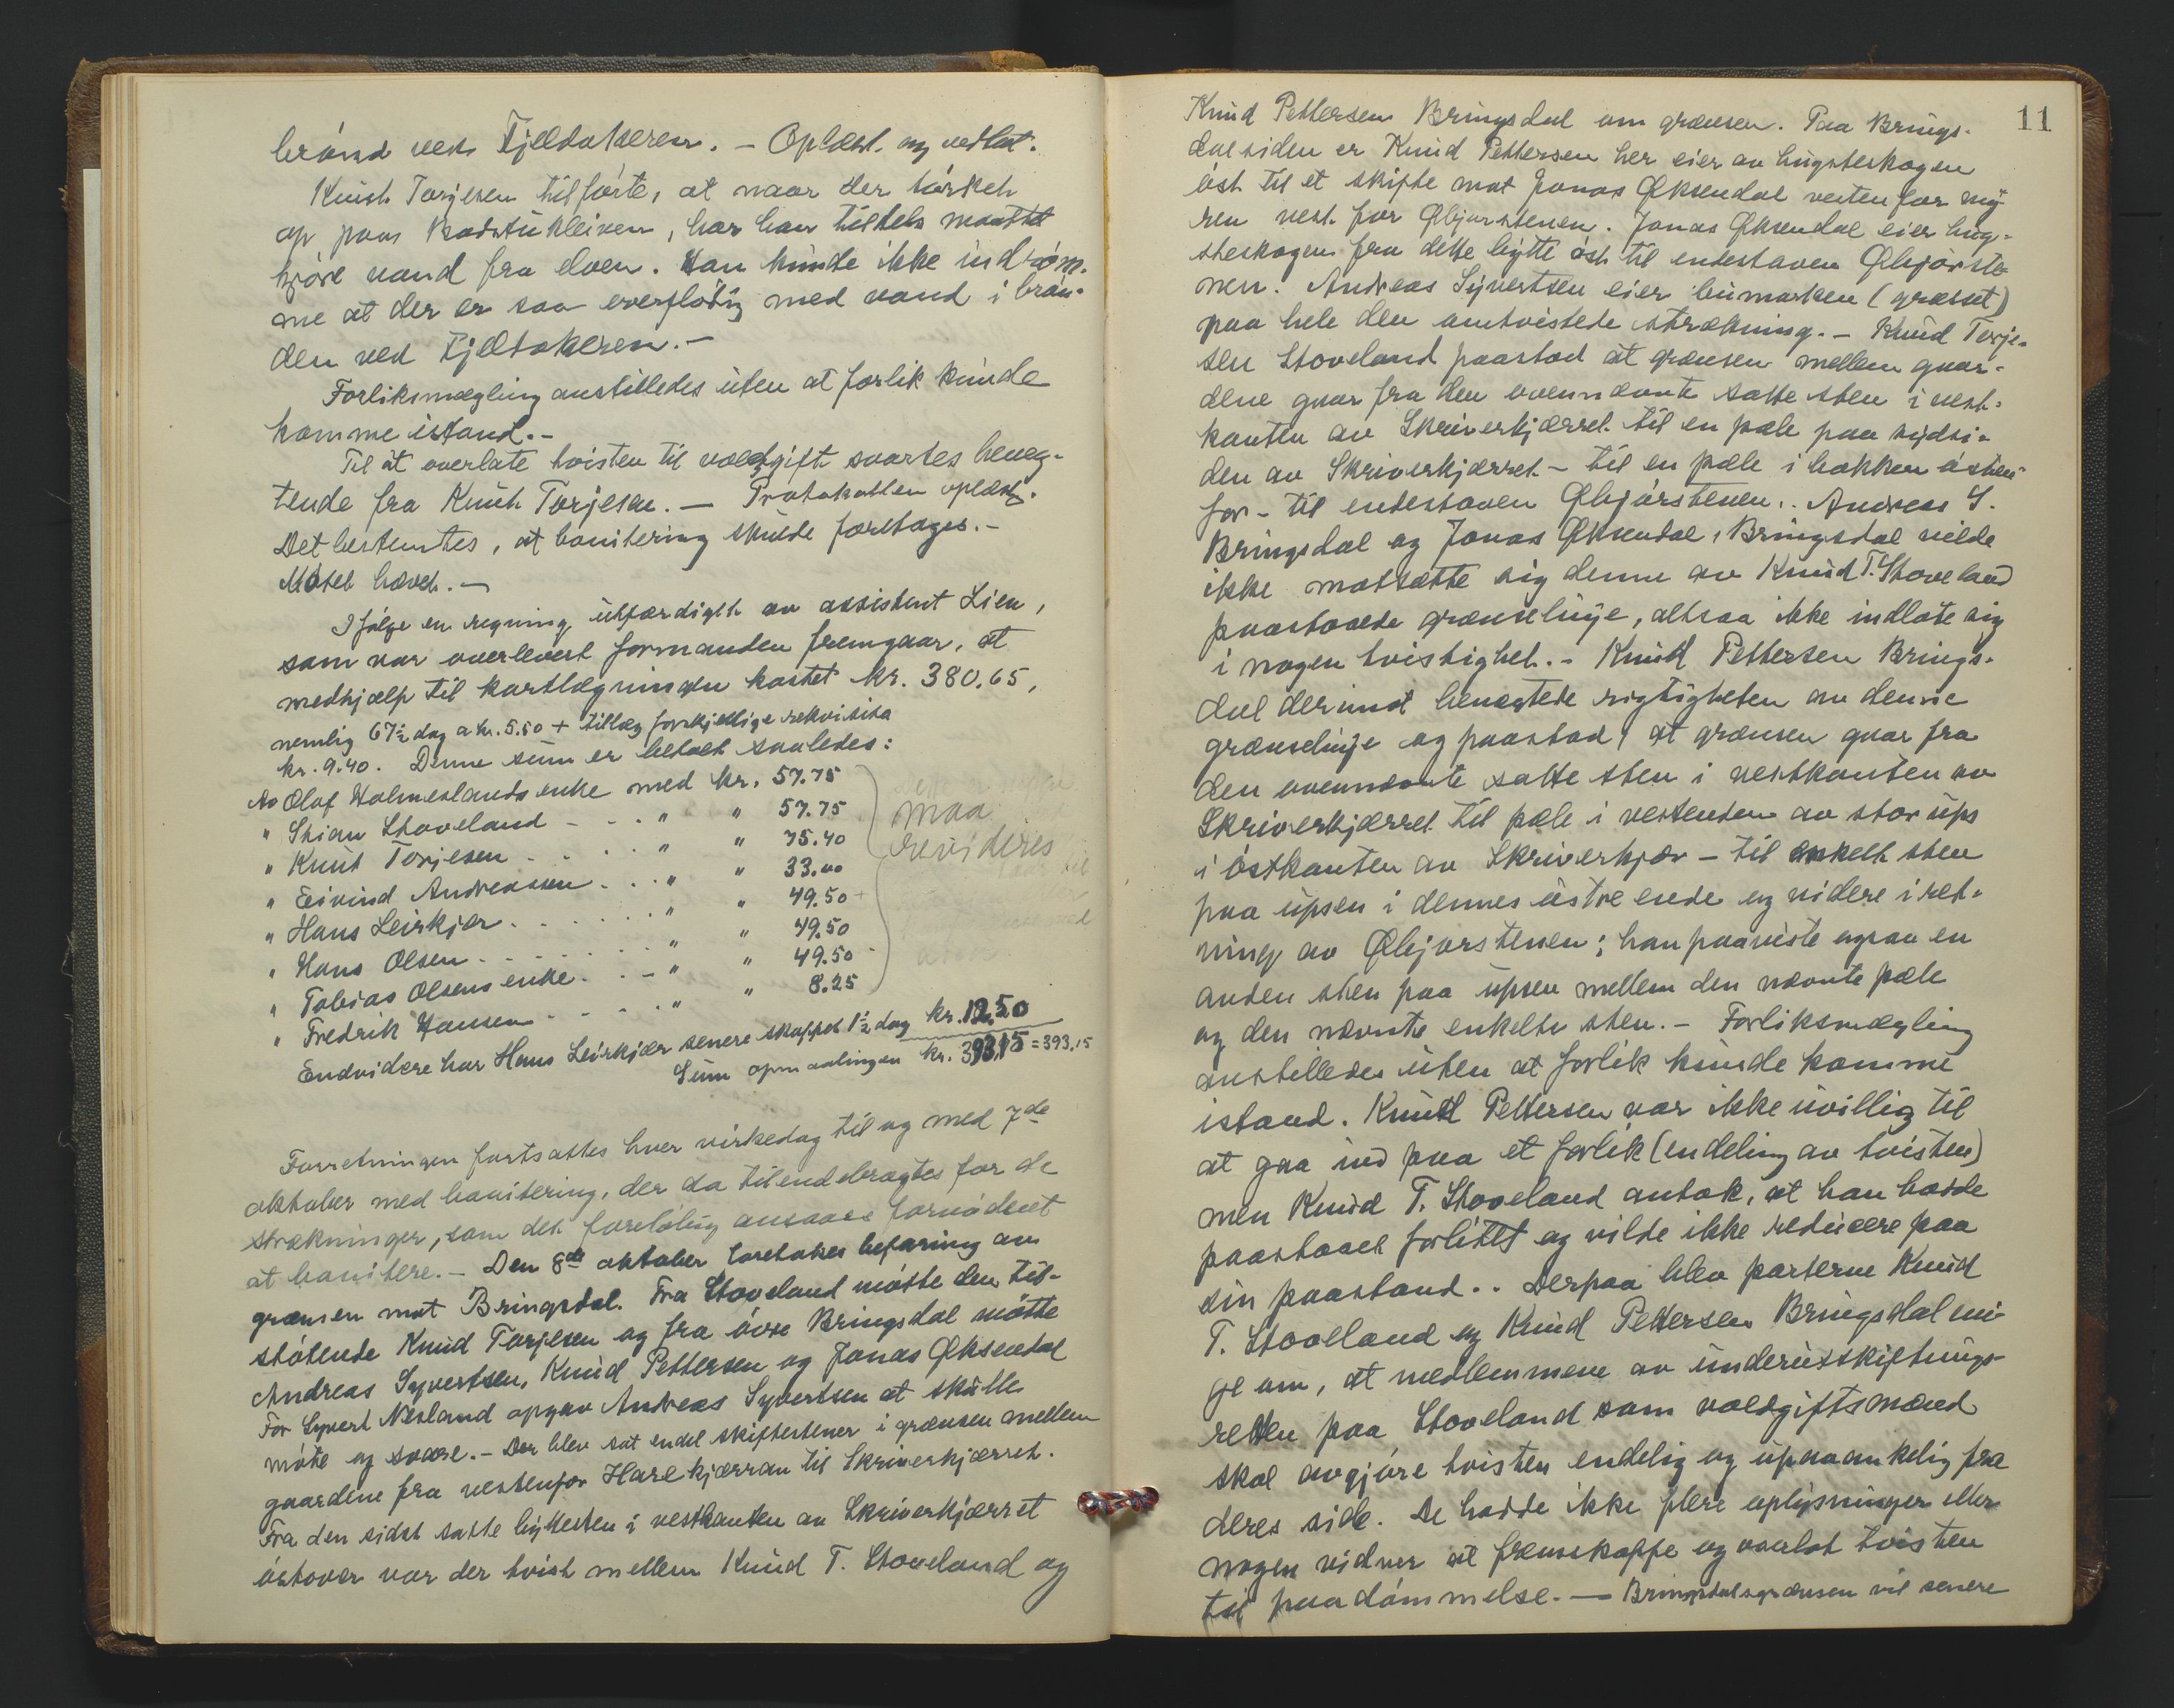 brønd ved Fjeldakeren. – Oplæst. og vedtat.
Knut Torjesen tilførte, at naar der tørket
op paa Badstukleiven, har han tildels maattet
kjøre vand fra elven. Han kunde ikke indrøm-
me at der er saa overflødig med vand i brøn-
den ved Fjeldakeren.–
Forliksmægling anstilledes uten at forlik kunde
komme istand.–
Til at overlate tvisten til voldgift svartes beneg-
tende fra Knut Torjesen. – Protokollen oplæst.
Det bestemtes, at bonitering skulde foretages.–
Møtet hævet.–
Ifølge en regning utfærdiget av assistent Lien,
som var overlevert formanden fremgaar, at
medhjælp til kartlægningen kostet kr. 380.65,
nemlig 67½ dag a kr. 5.50 + tillæg forskjellige rekvisita
kr. 9.40. Denne sum er betalt saaledes:
Av Olaf Holmeslands enke med kr. 57.75
" Stian Stoveland - - - " " 57.75
" Knut Torjesen - - - " " 75.40
" Eivind Andreassen - - - " " 33.00
" Hans Leirkjær - - - " " 49.50
" Hans Olsen - - - " " 49.50
" Tobias Olsens enke - - - " " 49.50
" Fredrik Hansen - - - " " 8.25
maa
revideres
Endvidere har Hans Leirkjær senere skaffet 1½ dag kr. 12.50
Sum opmaalingen kr. 393.15 = 393,15
Forretningen fortsattes hver virkedag til og med 7de
oktober med bonitering, der da tilendebragtes for de
strækninger, som det foreløbig ansaaes fornødent
at bonitere. – Den 8de oktober foretokes befaring av
grænsen mot Bringsdal. Fra Stoveland møtte den til-
støtende Knud Torjesen og fra øvre Bringsdal møtte
Andreas Syvertsen, Knud Pettersen og Jonas Øksendal
For Syvert Nesland opgav Andreas Syvertsen at skulle
møte og svare. – Der blev sat endel skiftestener i grænsen mellem
gaardene fra vestenfor Harekjærran til Skriverkjærret.
Fra den sidst satte byttesten i vestkanten av Skriverkjærret
østover var der tvist mellem Knud T. Stoveland og
11
Knud Pettersen Bringsdal om grænsen. Paa Brings-
dalsiden er Knud Pettersen her eier av hugsterskogen
øst til et skifte mot Jonas Øksendal vestenfor my-
ren vest for Øbjørstenen. Jonas Øksendal eier hug-
sterskogen fra dette bytte øst til endestaven Øbjørste-
nen. Andreas Syvertsen eier bumarken (græsset)
paa hele den omtvistede strækning. – Knud Torje-
sen Stoveland paastod at grænsen mellem gaar-
dene gaar fra den ovennævnte satte sten i vest-
kanten av Skriverkjærret til en pæle paa sydsi-
den av Skriverkjærret – til en pæle i bakken østen-
for – til endestaven Øbjørstenen. Andreas S.
Bringsdal og Jonas Øksendal, Bringsdal vilde
ikke motsætte sig denne av Knud T. Stoveland
paastaaede grænselinje, altsaa ikke indlate sig
i nogen tvistighet. – Knud Pettersen Brings-
dal derimot benegtede rigtigheten av denne
grænselinje og paastod, at grænsen gaar fra
den ovennævnte satte sten i vestkanten av
Skriverkjærret til pæle i vestenden av stor ups
i østkanten av Skriverkjær – til enkelt sten
paa upsen i dennes østre ende og videre i ret-
ning av Øbjørstenen; han paaviste ogsaa en
anden sten paa upsen mellem den nævnte pæle
og den nævnte enkelte sten. – Forliksmægling
anstilledes uten at forlik kunde komme
istand. Knud Pettersen var ikke uvillig til
at gaa ind paa et forlik (en deling av tvisten)
men Knud T. Stoveland antok, at han hadde
paastaaet forlitet og vilde ikke reducere paa
sin paastand. . Derpaa blev parterne Knud
T. Stoveland og Knud Pettersen Bringsdal eni-
ge om, at medlemmene av underutskiftnings-
retten paa Stoveland som voldgiftsmænd
skal avgjøre tvisten endelig og upaaankelig fra
deres side. De hadde ikke flere oplysninger eller
nogen vidner at fremskaffe og overlot tvisten
til paadømmelse. – Bringsdalsgrænsen vil senere